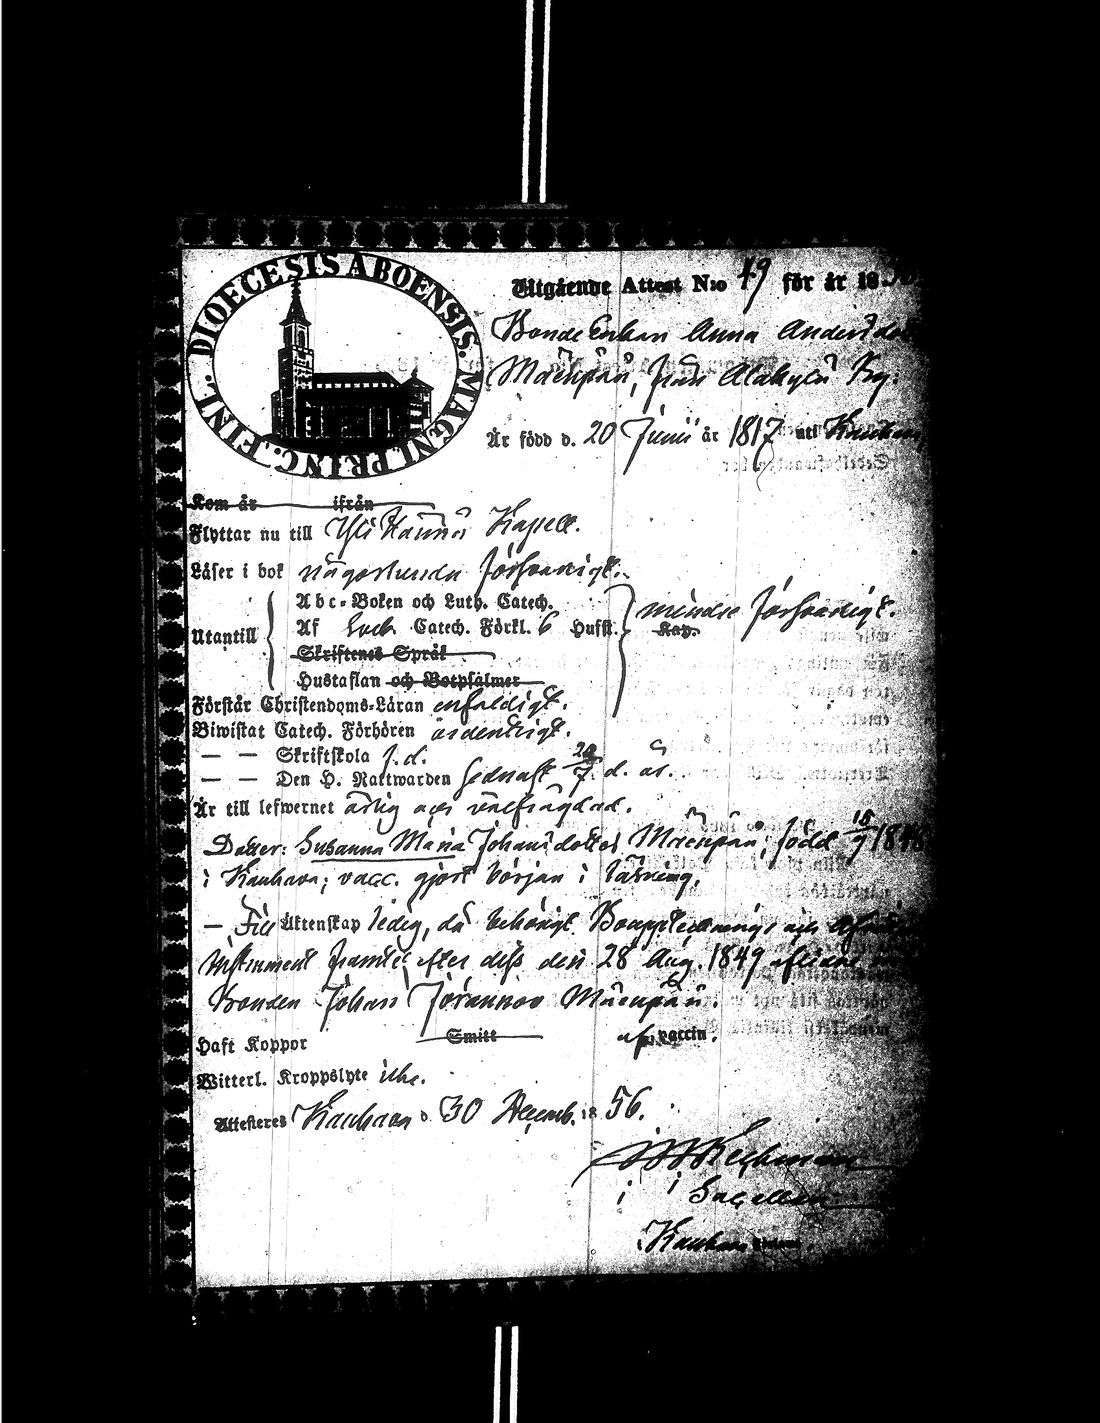 DIOECESIS ABOENSIS. MAGNI PRINC. FINL.
Utgående Attest N:o 49 för år 18
Bonde Enkan Anna Andersdotter
Mäenpää, från Alakylä By.
Är född d. 20 Junii år 1817 uti Kauhava
Kom år ifrån
Flyttar nu till Yli Härmä Kapell.
Läser i bok någorlunda försvarligt.
Abc-Boken och Luth. Catech.
Utantill
Af Luth. Catech. Förkl. 6 Hufst. Kap. mindre försvarligt.
Skriftenes Språk
Hustaflan och Botpsalmer
Förstår Christendoms-Läran enfaldigt.
Biwistat Catech. Förhören ordentligt.
— — Skriftskola d:o
— — Den H. Nattwarden sednast 20/7 d. år.
Är till lefwernet ärlig och välfrägdad.
Dotter: Susanna Maria Johansdotter Mäenpää, född 18/9 1846
i Kauhava; vacc. gjort början i läsning.
— Till Äktenskap ledig, då behörigt Boupptecknings och
Instrument framtes efter dess den 28 Aug. 1849 aflidne man
Bonden Johan Mäenpää.
Haft Koppor Smitt af vaccin.
Witterl. Kroppslyte icke.
Attesteres Kauhava d. 30 Decemb. 18 56.
i
Kauhava